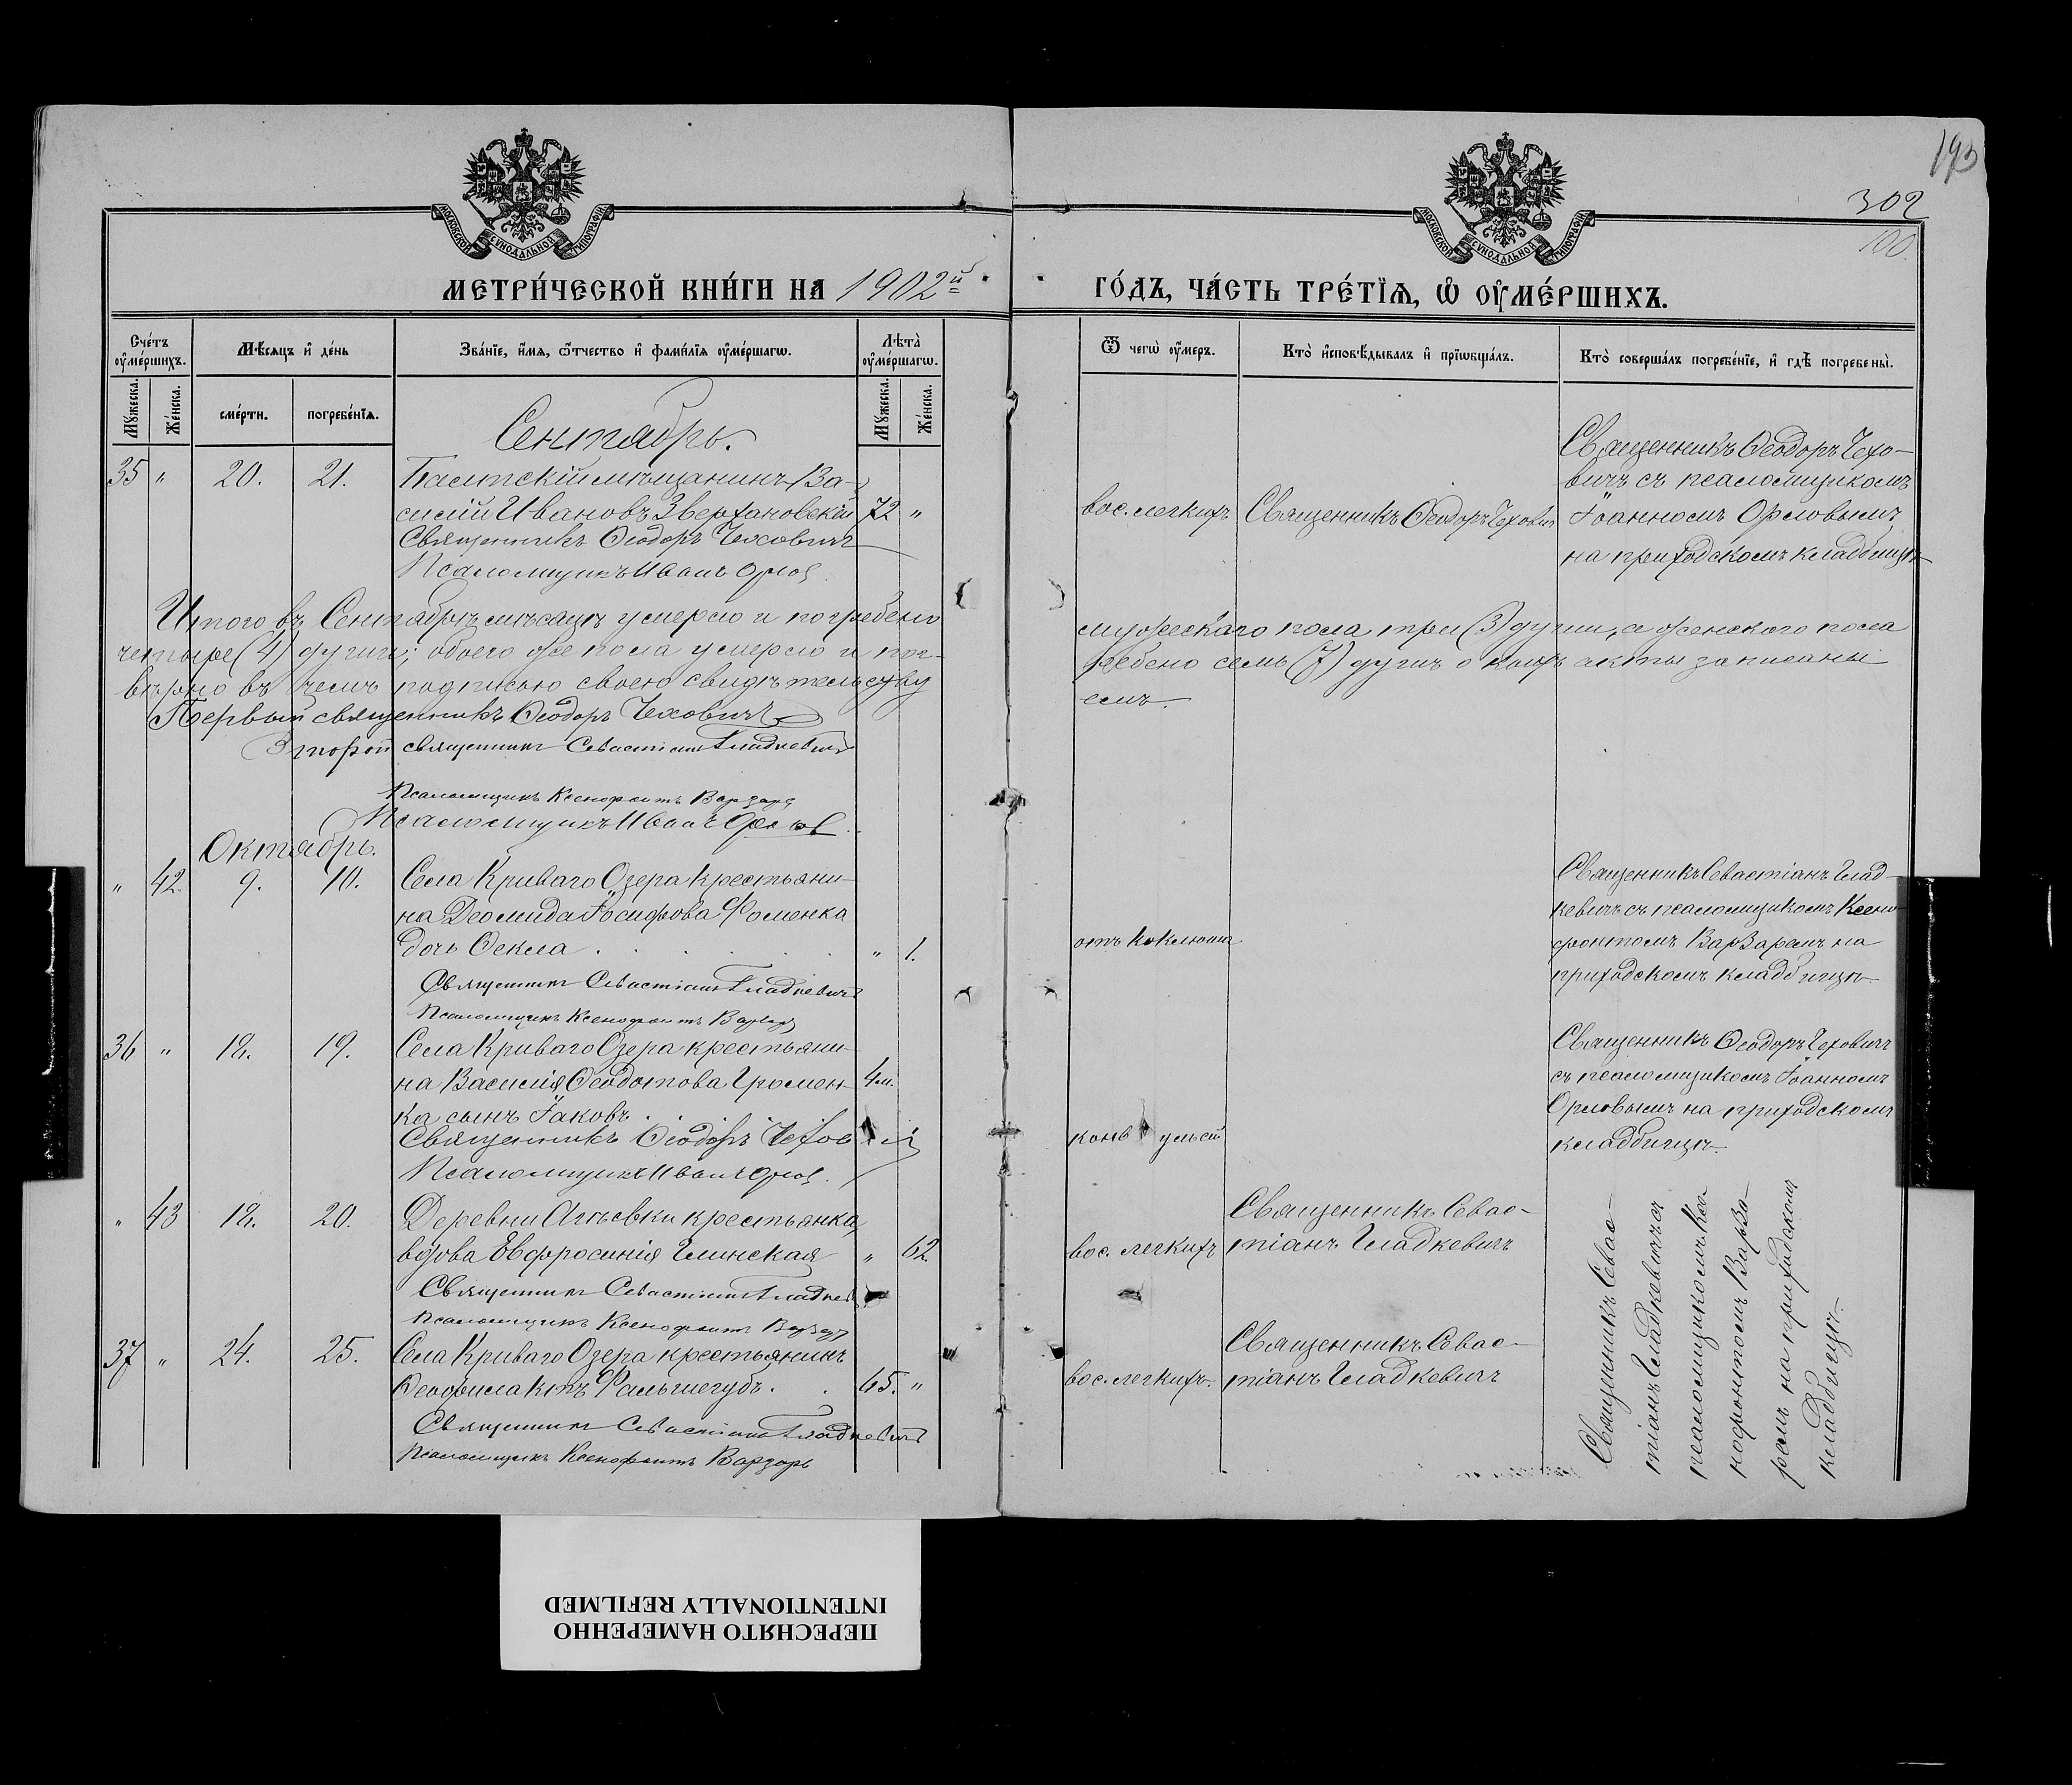 193
302
100.
МОСКОВСКОЙ СУНОДАЛЬНОЙ ТИПОГРАФІИ
МОСКОВСКОЙ СУНОДАЛЬНОЙ ТИПОГРАФІИ
МЕТРИ́ЧЕСКОЙ КНИ́ГИ НА 1902й
ГО́ДЪ, ЧА́СТЬ ТРЕ́ТІѦ, Ѡ ОУ҆МЕ́РШИХЪ.
Сче́тъ оу҆ме́ршихъ.
Мꙋ́жеска.
Же́нска.
Мѣ́сяцъ и҆ де́нь
сме́рти.
погребе́нїѧ.
Зва́нїе, и҆́мѧ, ѻ҆́тчество и҆ фами́лїѧ оу҆ме́ршагѡ.
Лѣ́та̀ оу҆ме́ршагѡ.
Мꙋ́жеска.
Же́нска.
Ѿ чегѡ̀ оу҆́меръ.
Кто̀ и҆сповѣ́дывалъ и҆ прїѡбща́лъ.
Кто̀ соверша́лъ погребе́нїе, и҆ гдѣ̀ погребены̀.
Сентябрь.
35 " 20. 21. Балтскій мѣщанинъ Ва-
силій Ивановъ Зверхановскій 72 "
Священникъ Ѳеодоръ Чехович
Псаломщикъ Иванъ Орлов
вос. легкихъ Священникъ Ѳеодоръ Чехович
Священникъ Ѳеодоръ Чехо-
вичъ съ псаломщикомъ
Іоанномъ Орловымъ
на приходскомъ кладбищѣ
Итого въ Сентябрѣ мѣсяцѣ умерло и погребено мужескаго пола три (3) души, а женского пола
четыре (4) души; обоего же пола умерло и пог- ребено семь (7) душъ о коихъ акты записаны
вѣрно въ чемъ подписью своею свидѣтельству емъ.
Первый священникъ Ѳеодоръ Чеховичъ
Второй священникъ Севастіанъ Гладкевичъ
Псаломщикъ Ксенофонтъ Варзарь
Псаломщикъ Иванъ Орлов
Октябрь.
" 42. 9. 10. Села Криваго Озера крестьяни-
на Деомида Іосифова Фоменка
дочь Ѳекла . . . . . " 1.
Священникъ Севастіанъ Гладкевичъ
Псаломщикъ Ксенофонтъ Варзарь
отъ коклюша
Священникъ Севастіанъ Глад-
кевичъ съ псаломщикомъ Ксено-
фонтомъ Варзаремъ на
приходскомъ кладбищѣ
36 " 18. 19. Села Криваго Озера крестьяни-
на Василія Ѳеодотова Громен- 4 м.
ка сынъ Іаковъ .
Священникъ Ѳеодоръ Чехов
Псаломщикъ Иванъ Орлов.
Священникъ Ѳеодоръ Чеховичъ
съ псаломщикомъ Іоанномъ
Орловымъ на приходскомъ
кладбищѣ.
" 43 18. 20. Деревни крестьянка,
вдова Евфросинія Глинская " 62.
Священникъ Севастіанъ Гладкев
Псаломщикъ Ксенофонтъ Варзарь
вос. легкихъ
Священникъ Севас-
тіанъ Гладкевичъ
37 " 24. 25. Села Криваго Озера крестьянинъ
Ѳеофилактъ Фальшегубъ. . 65. "
Священникъ Севастіанъ Гладкевичъ
Псаломщикъ Ксенофонтъ Варзарь
вос. легкихъ.
Священникъ Севас-
тіанъ Гладкевичъ
Священникъ Севас-
тіанъ Гладкевичъ съ
псаломщикомъ Ксе-
нофонтомъ Варза-
ремъ на приходскомъ
кладбищѣ.
ПЕРЕСНЯТО НАМЕРЕННО
INTENTIONALLY REFILMED